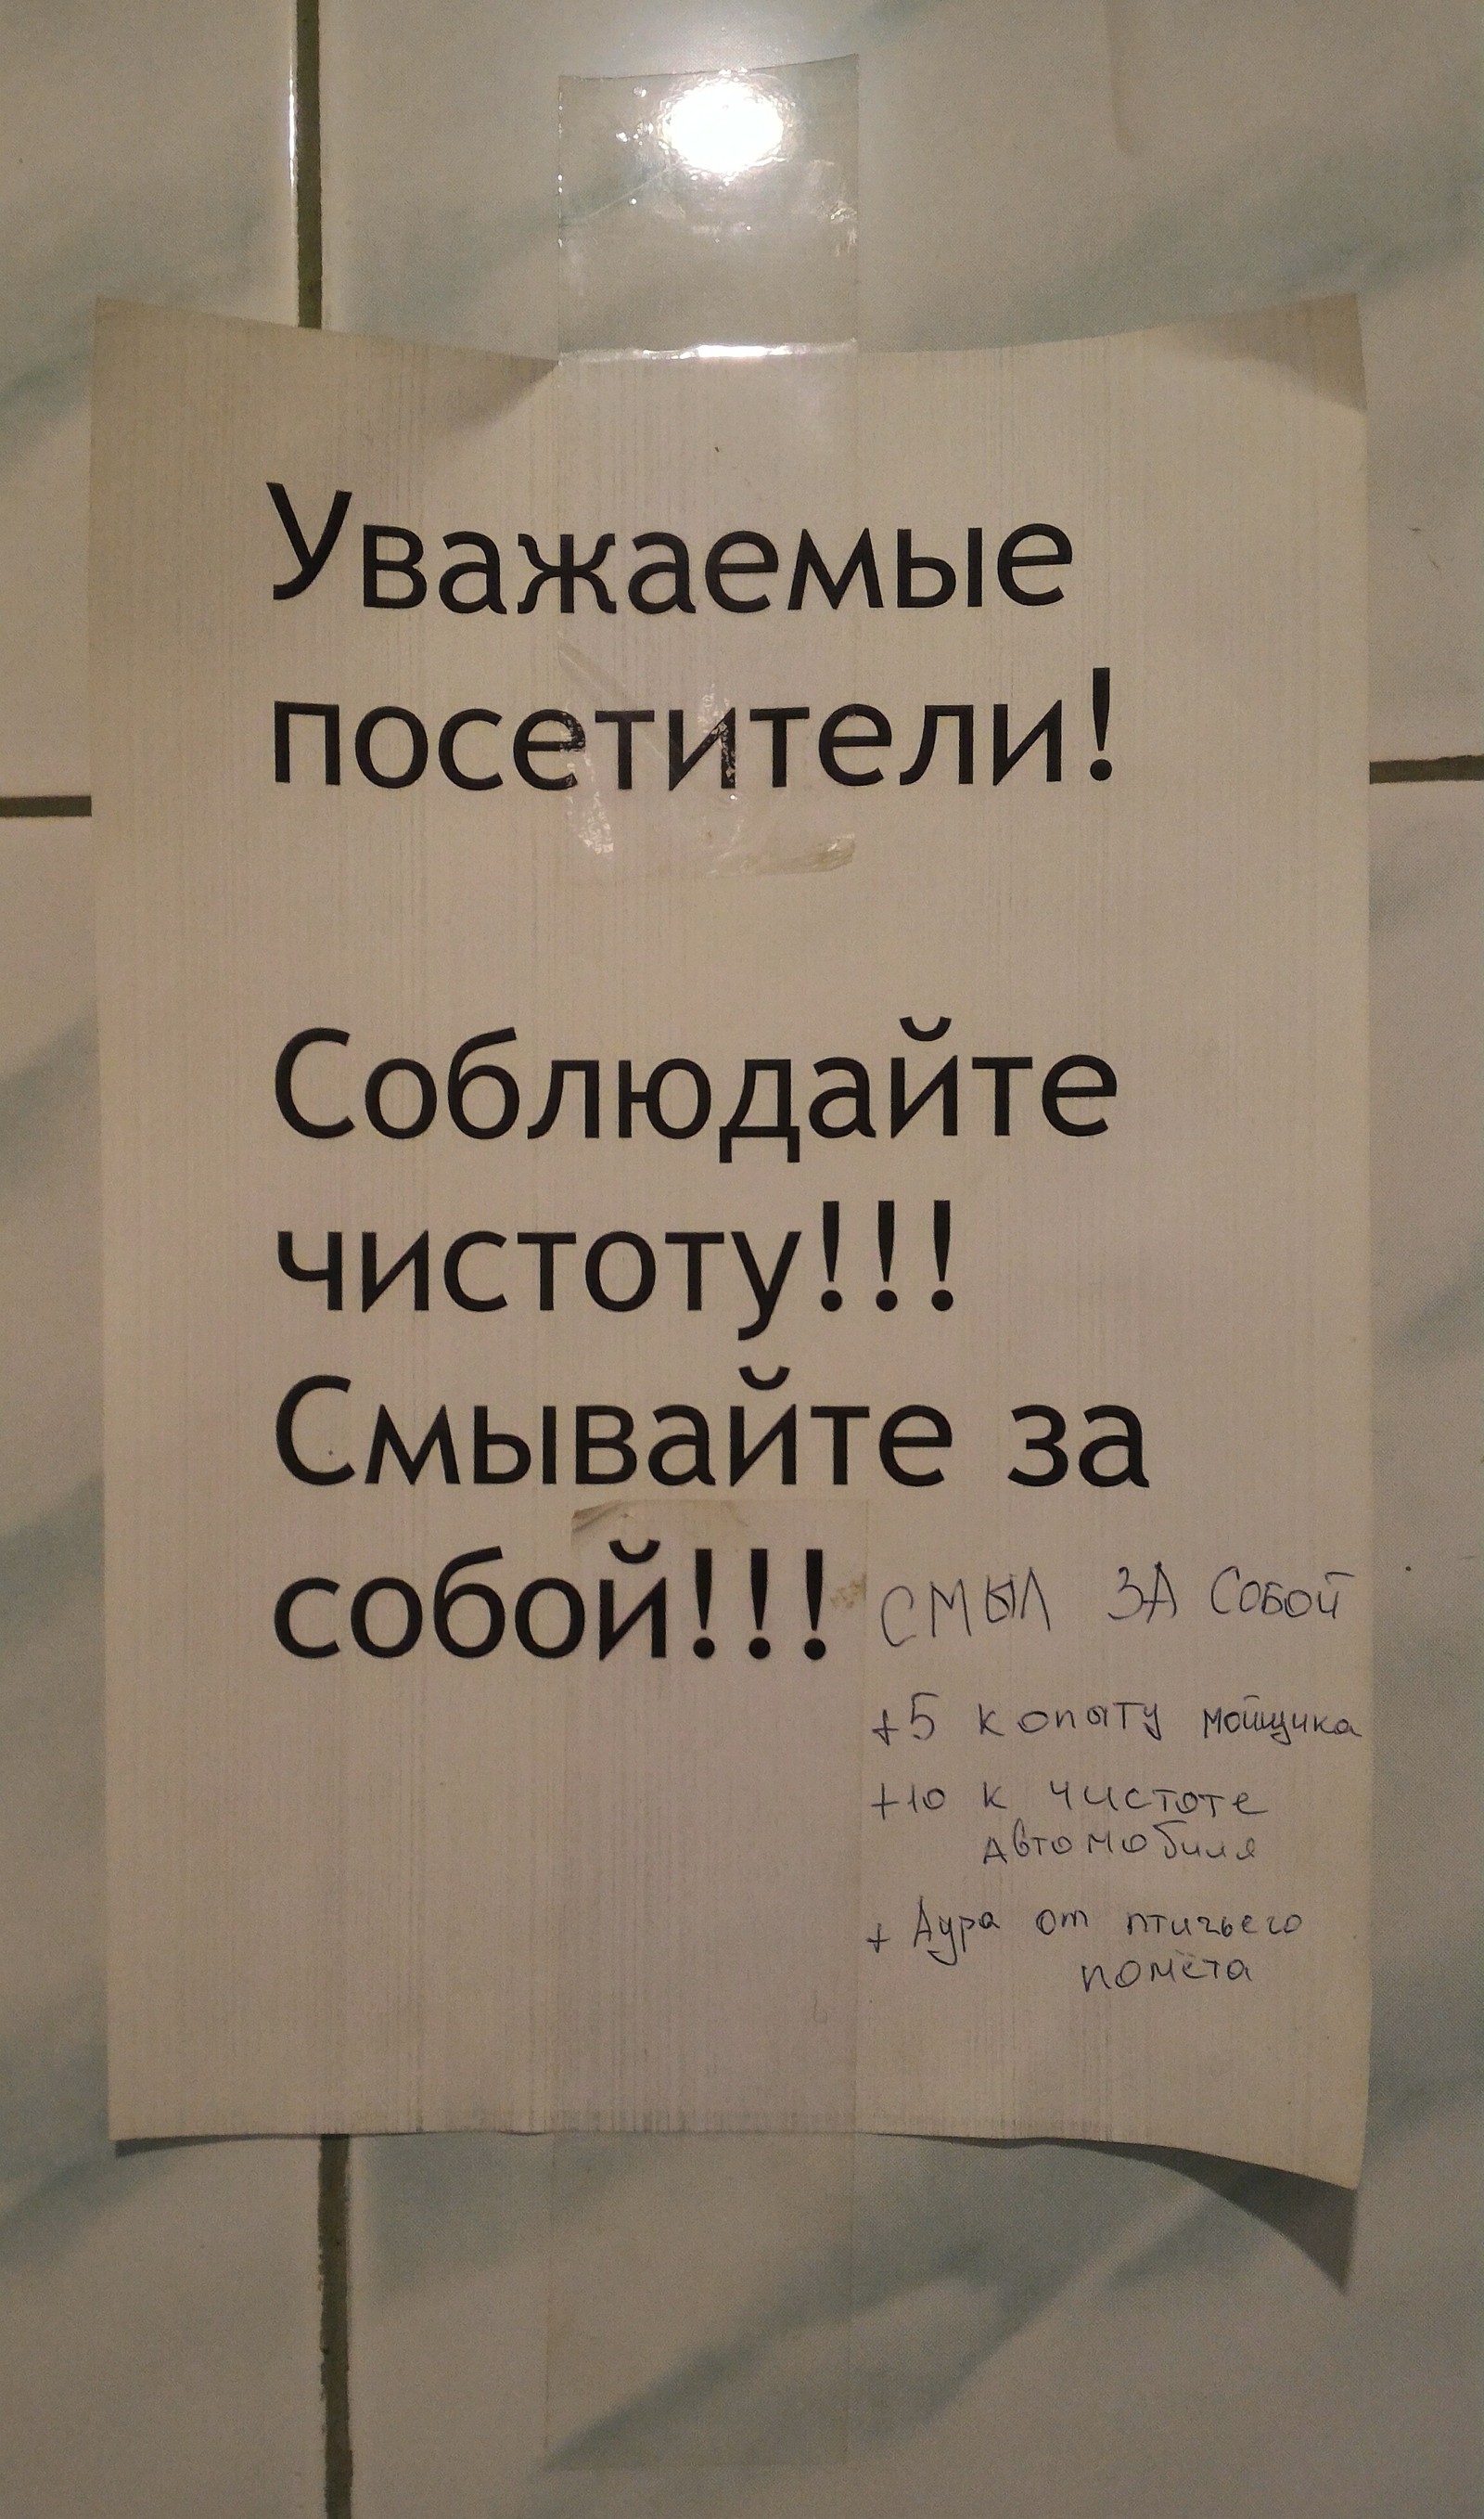 Уважаемые
посетители!
Соблюдайте
чистоту!!!
Смывайте за
собой!!!
СМЫЛ ЗА СОБОЙ
+5 к опыту мойщика
+10 к чистоте
автомобиля
+ Аура от птичьего
помёта